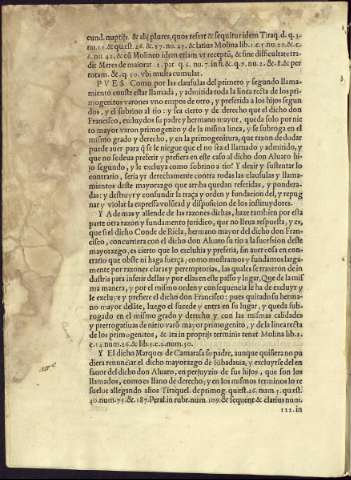 cund. nuptijs. & alij plures, quos refert & sequitur idem Tiraq. d. q. 3.
nu. 11. & quæst. 26. & 27. nu. 25. & latius Molina lib. 1. c. 3. nu. 22. & c.
6. nu 42. & cũ Molineo idem etiam vt receptũ, & sine difficultate tra-
dit Meres de maiorat. 1. par. q. 2. nu. 7. in fi. & q. 7. nu. 2. & 8. & per
totam. & q. 50. vbi multa cumulat.
PVES Como por las clausulas del primero y segundo llama-
miento conste estar llamada, y admitida toda la linea recta de los pri-
mogenitos varones vno empos de otro, y preferida a los hijos segun
dos, y el sobrino al tio: y sea cierto y de derecho que el dicho don
Francisco, excluydos su padre y hermano mayor, queda solo por nie
to mayor varon primogenito y de la misma linea, y se subroga en el
mismo grado y derecho, y en la primogenitura, que razon de dudar
puede auer para q̃ se le niegue que el no sea el llamado y admitido, y
que no se deua preferir y prefiera en este caso al dicho don Aluaro hi-
jo segundo, y le excluya como sobrino a tio? Y dezir y sustentar lo
contrario, seria yr derechamente contra todas las clausulas y llama-
mientos deste mayorazgo que arriba quedan referidas, y pondera-
das: y destruyr y confundir la traça y orden y fundacion del, y repug
nar y violar la expressa volũtad y disposicion de los instituydores.
Y Ademas y allende de las razones dichas, haze tambien por esta
parte otra razon y fundamento juridico, que no lleua respuesta, y es,
que si el dicho Conde de Ricla, hermano mayor del dicho don Fran-
cisco, concurriera con el dicho don Aluaro su tio a la succession deste
mayorazgo, es cierto que lo excluhia y preferia, sin auer cosa en con-
trario que obste ni haga fuerça, como mostramos y fundamos larga-
mente por razones claras y peremptorias, las quales se traxeron de in
dustria para inferir dellas y por ellas en este passo y lugar. Que de la mis
ma manera, y por el mismo orden y consequencia le ha de excluyr y
le excluye y prefiere el dicho don Francisco: pues quitado su herma-
no mayor delãte, luego el sucede y entra en su lugar, y queda subro-
rogado en el mismo grado y derecho y con las mismas calidades
y prerrogatiuas de nieto varõ mayor primogenito, y de la linea recta
de los primogenitos, & ita in proprijs terminis tenet Molina lib. 1.
c. 14. num. 26. & lib. 3. c. 2. num. 30.
Y El dicho Marques de Camarasa su padre, aunque quisiera no pu
diera renunciar el dicho mayorazgo de su abuela, y excluyrse del en
fauor del dicho don Aluaro, en perjuyzio de sus hijos, que son los
llamados, como es llano de derecho, y en los mismos terminos lo re
suelue allegando a otros Tiraquel. de primog. quæst. 26. num. 7. quæst.
40. num. 75. & 187. Peral. in rubr. num. 109. & sequent & clarius num.
111. in